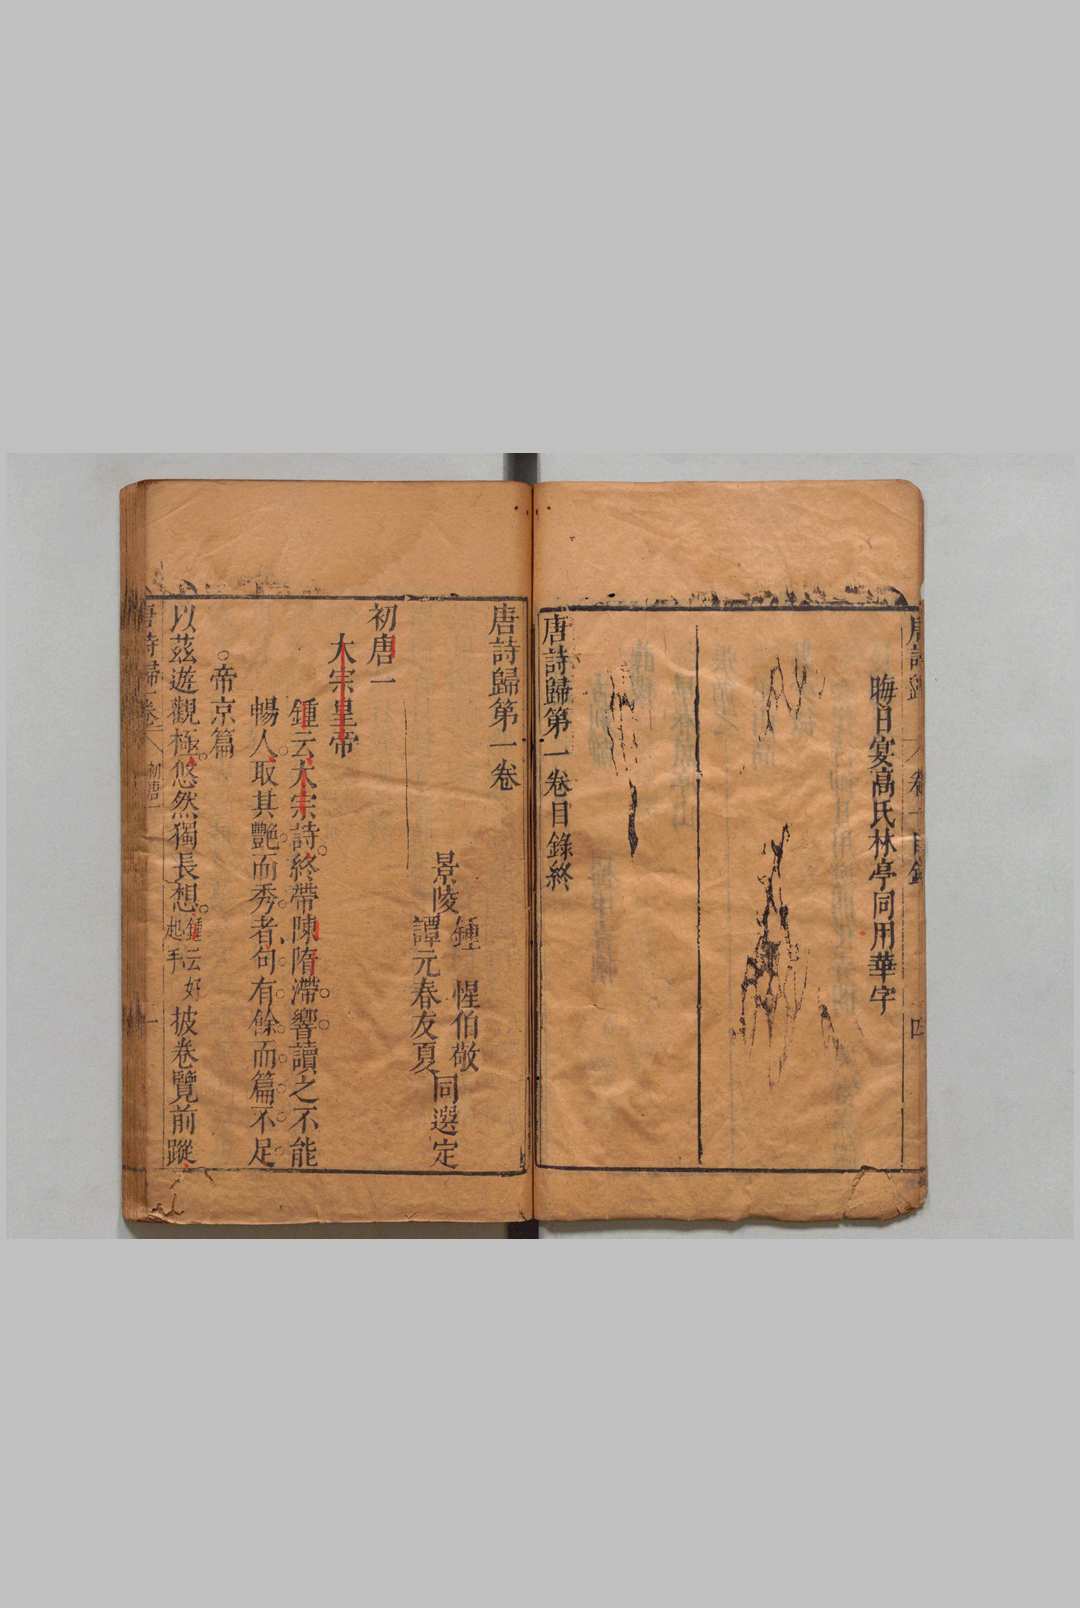 晦日宴高氏林亭同用華字
唐詩歸第一卷目錄終
唐詩歸第一卷
景陵
鍾惺伯敬
譚元春友夏
同選定
初唐一
太宗皇帝
鍾云太宗詩終帶陳隋滯響讀之不能
暢人取其艷而秀者句有餘而篇不足
帝京篇
以茲遊觀極悠然獨長想鍾云好起手披卷覽前蹤